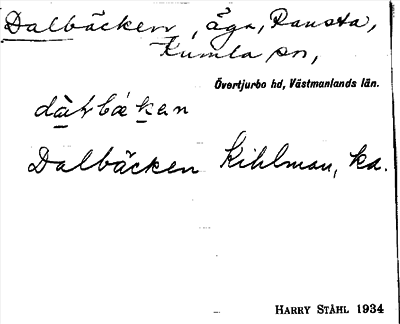 Dalbäcken, äga, Ransta,
Kumla sn,
Övertjurbo hd, Västmanlands län.
dàlbäkan
Dalbäcken Kihlman, ka.
HARRY STÅHL 1934